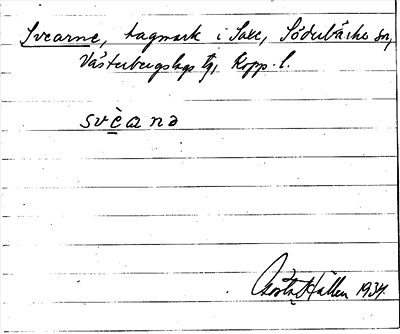 Svearne, tagmark i Saxe, Söderbärke sn,
Västerbergslags tg, Kopp. l.
svèana
Gösta Hallén 1934.